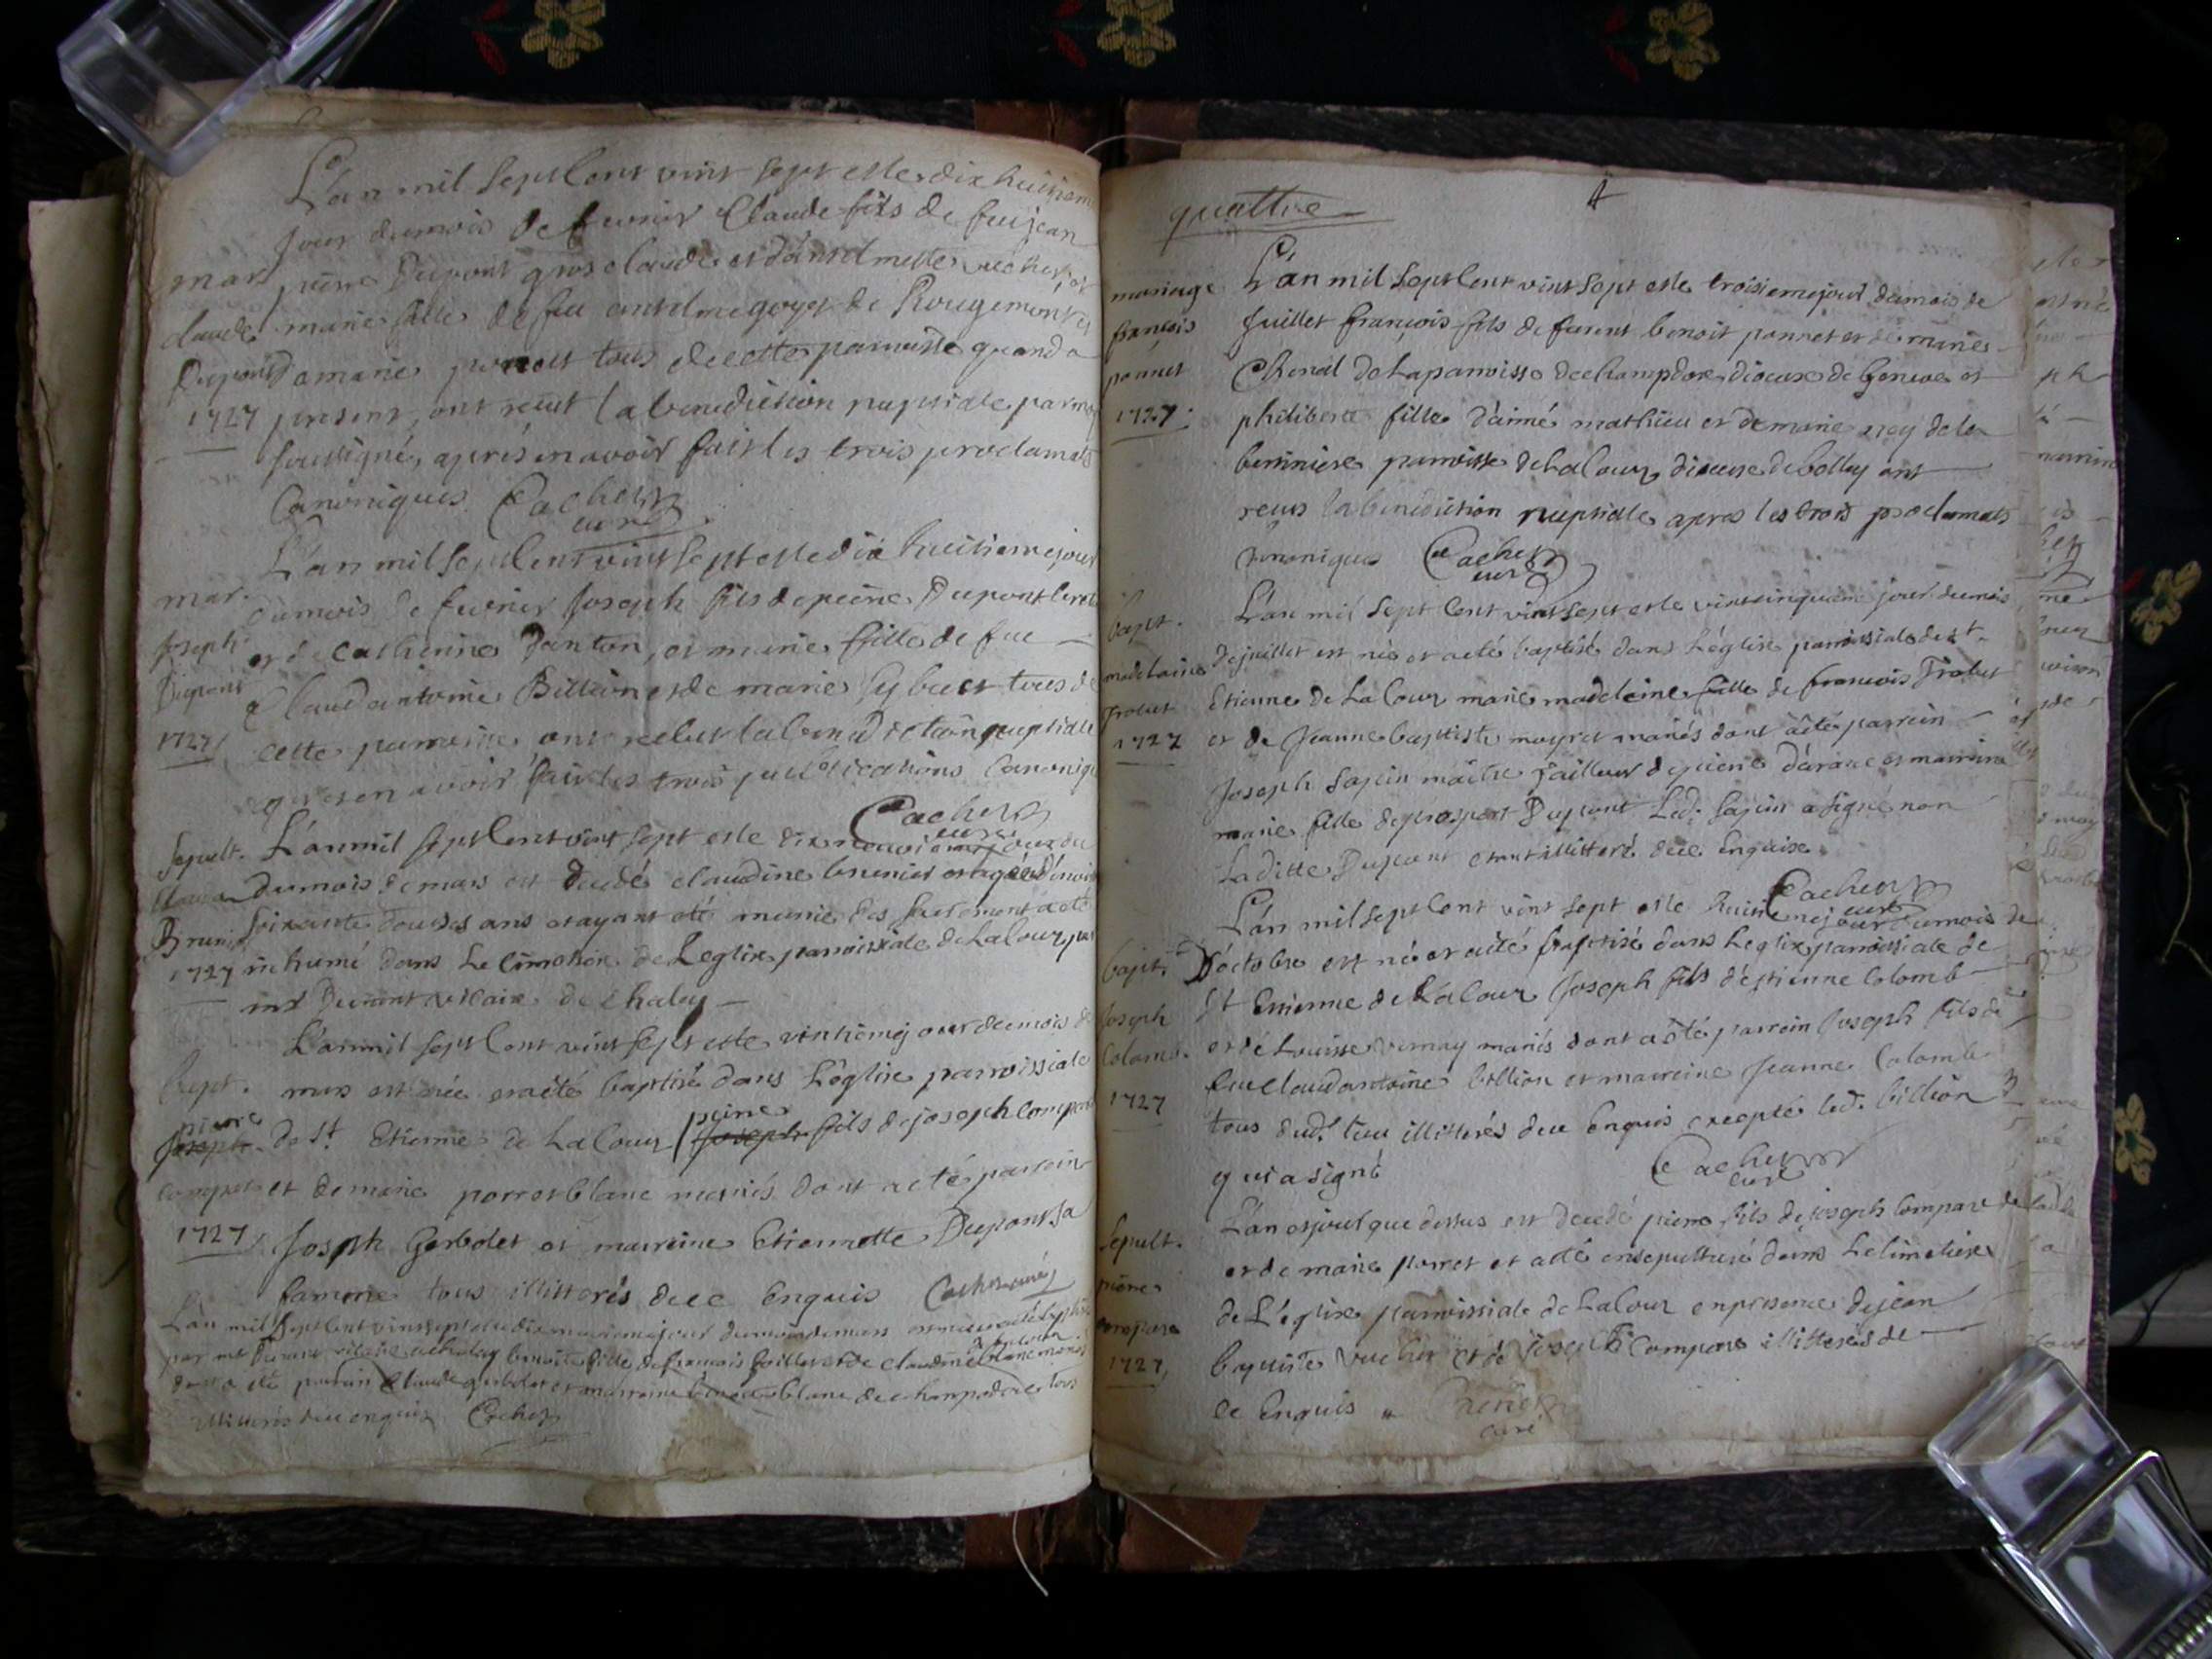 L'an mil sept Cent vint sept et le dix huitieme
jour du mois de fevrier Claude fils de feu jean
mar. pierre Dupont gros claude et d'antelmette vuchier, et
claude marie fille de feu antelme goyet de Rougemont et
Dupont a marie porret tous de cette parroisse quand a
1727 present, ont receut la benediction nuptiale par moy
soussigné, apres en avoir fait les trois proclamats
Canoniques Cacher
curé
L'an mil sept Cent vint sept et le dix huitieme jour
mar. du mois de fevrier Joseph fils de pierre Dupont
Joseph et de Catherine Janton, et marie fille de feu
Dupont Claud'antoine Billion et de marie tous de
1727 cette parroisse ont receut la benediction nuptialle
apres en avoir fait les trois publications Canoniq
Cacher
curé
Sepult. L'an mil sept Cent vint sept et le dix neuvieme jour du
Claudine du mois de mars est decedé claudine brunier
Brunier soixante douses ans et ayant eté munie des sacrement a eté
1727 inhumé dans le cimetiere de Leglise parroissiale de Lalour par
mr Durant vicaire de chaley
L'an mil sept Cent vint sept et le vintieme jour du mois de
bapt. mars est née et a eté baptisé dans L'église parroissiale
pierre
Joseph de St. Etienne de Lalour pierre Joseph fils de joseph Compere
compere et de marie porret blanc mariés dont a eté parrein
1727 Joseph Gerbolet et marreine Etiennette Dupont sa
famme tous illitterés de ce Enquis Cacher curé
L'an mil sept Cent vint sept et le dix neuvieme jour du mois de mars est née et a eté baptisé
par mr Durant vicaire de chaley benoite fille de francois et de claudine blanc mariés
dont a eté parrain Claude gerbolet et marreine benoite blanc de champdore tous
illitterés de ce enquis Cacher
quattre
4
mariage L'an mil sept Cent vint sept et le troisieme jour du mois de
francois Juillet francois fils de furent benoit ponnet et de marie
ponnet Chenal de La parroisse de champdore diocese de Geneve et
1727. philiberte fille d'aimé mathieu et de marie rey de la
parroisse de Lalour diocese de belley ont
reçus la benediction nuptialle apres les trois proclamats
Canoniques Cacher
curé
bapt. L'an mil sept Cent vint sept et le vintcinquieme jour du mois
madelaine de juillet est née et a eté baptisé dans L'église parroissiale de st.
Trolut Etienne de Lalour marie madelaine fille de francois Trolut
1727 et de Jeanne baptiste moyret mariés dont a eté parrein
Joseph Sapin maitre Tailleur de pierre d'arane et marreine
marie fille de prospert Dupont Led. Sapin a signé non
Laditte Dupont etant illitteré de ce Enquise
Cacher
curé
L'an mil sept Cent vint sept et le huitieme jour du mois de
bapt. D'octobre est né et a eté baptisé dans Leglise parroissiale de
Joseph St Etienne de Lalour Joseph fils d'estienne Colomb
Colomb. et de Louisse vernay mariés dont a eté parrein Joseph fils de
feu claud'antoine billion et marreine Jeanne Colomb
1727 tous dud. lieu illitterés de ce Enquis excepté led. billion
qui a signé Cacher
curé
Sepult. L'an et jour que dessus est decedé pierre fils de joseph Compare
pierre et de marie porret et a eté ensepulturé dans Le cimetiere
compare de L'église parroissiale de Lalour en presence de jean
1727, baptiste vuchier et de joseph Compere illitterés de
ce Enquis Cacher
curé